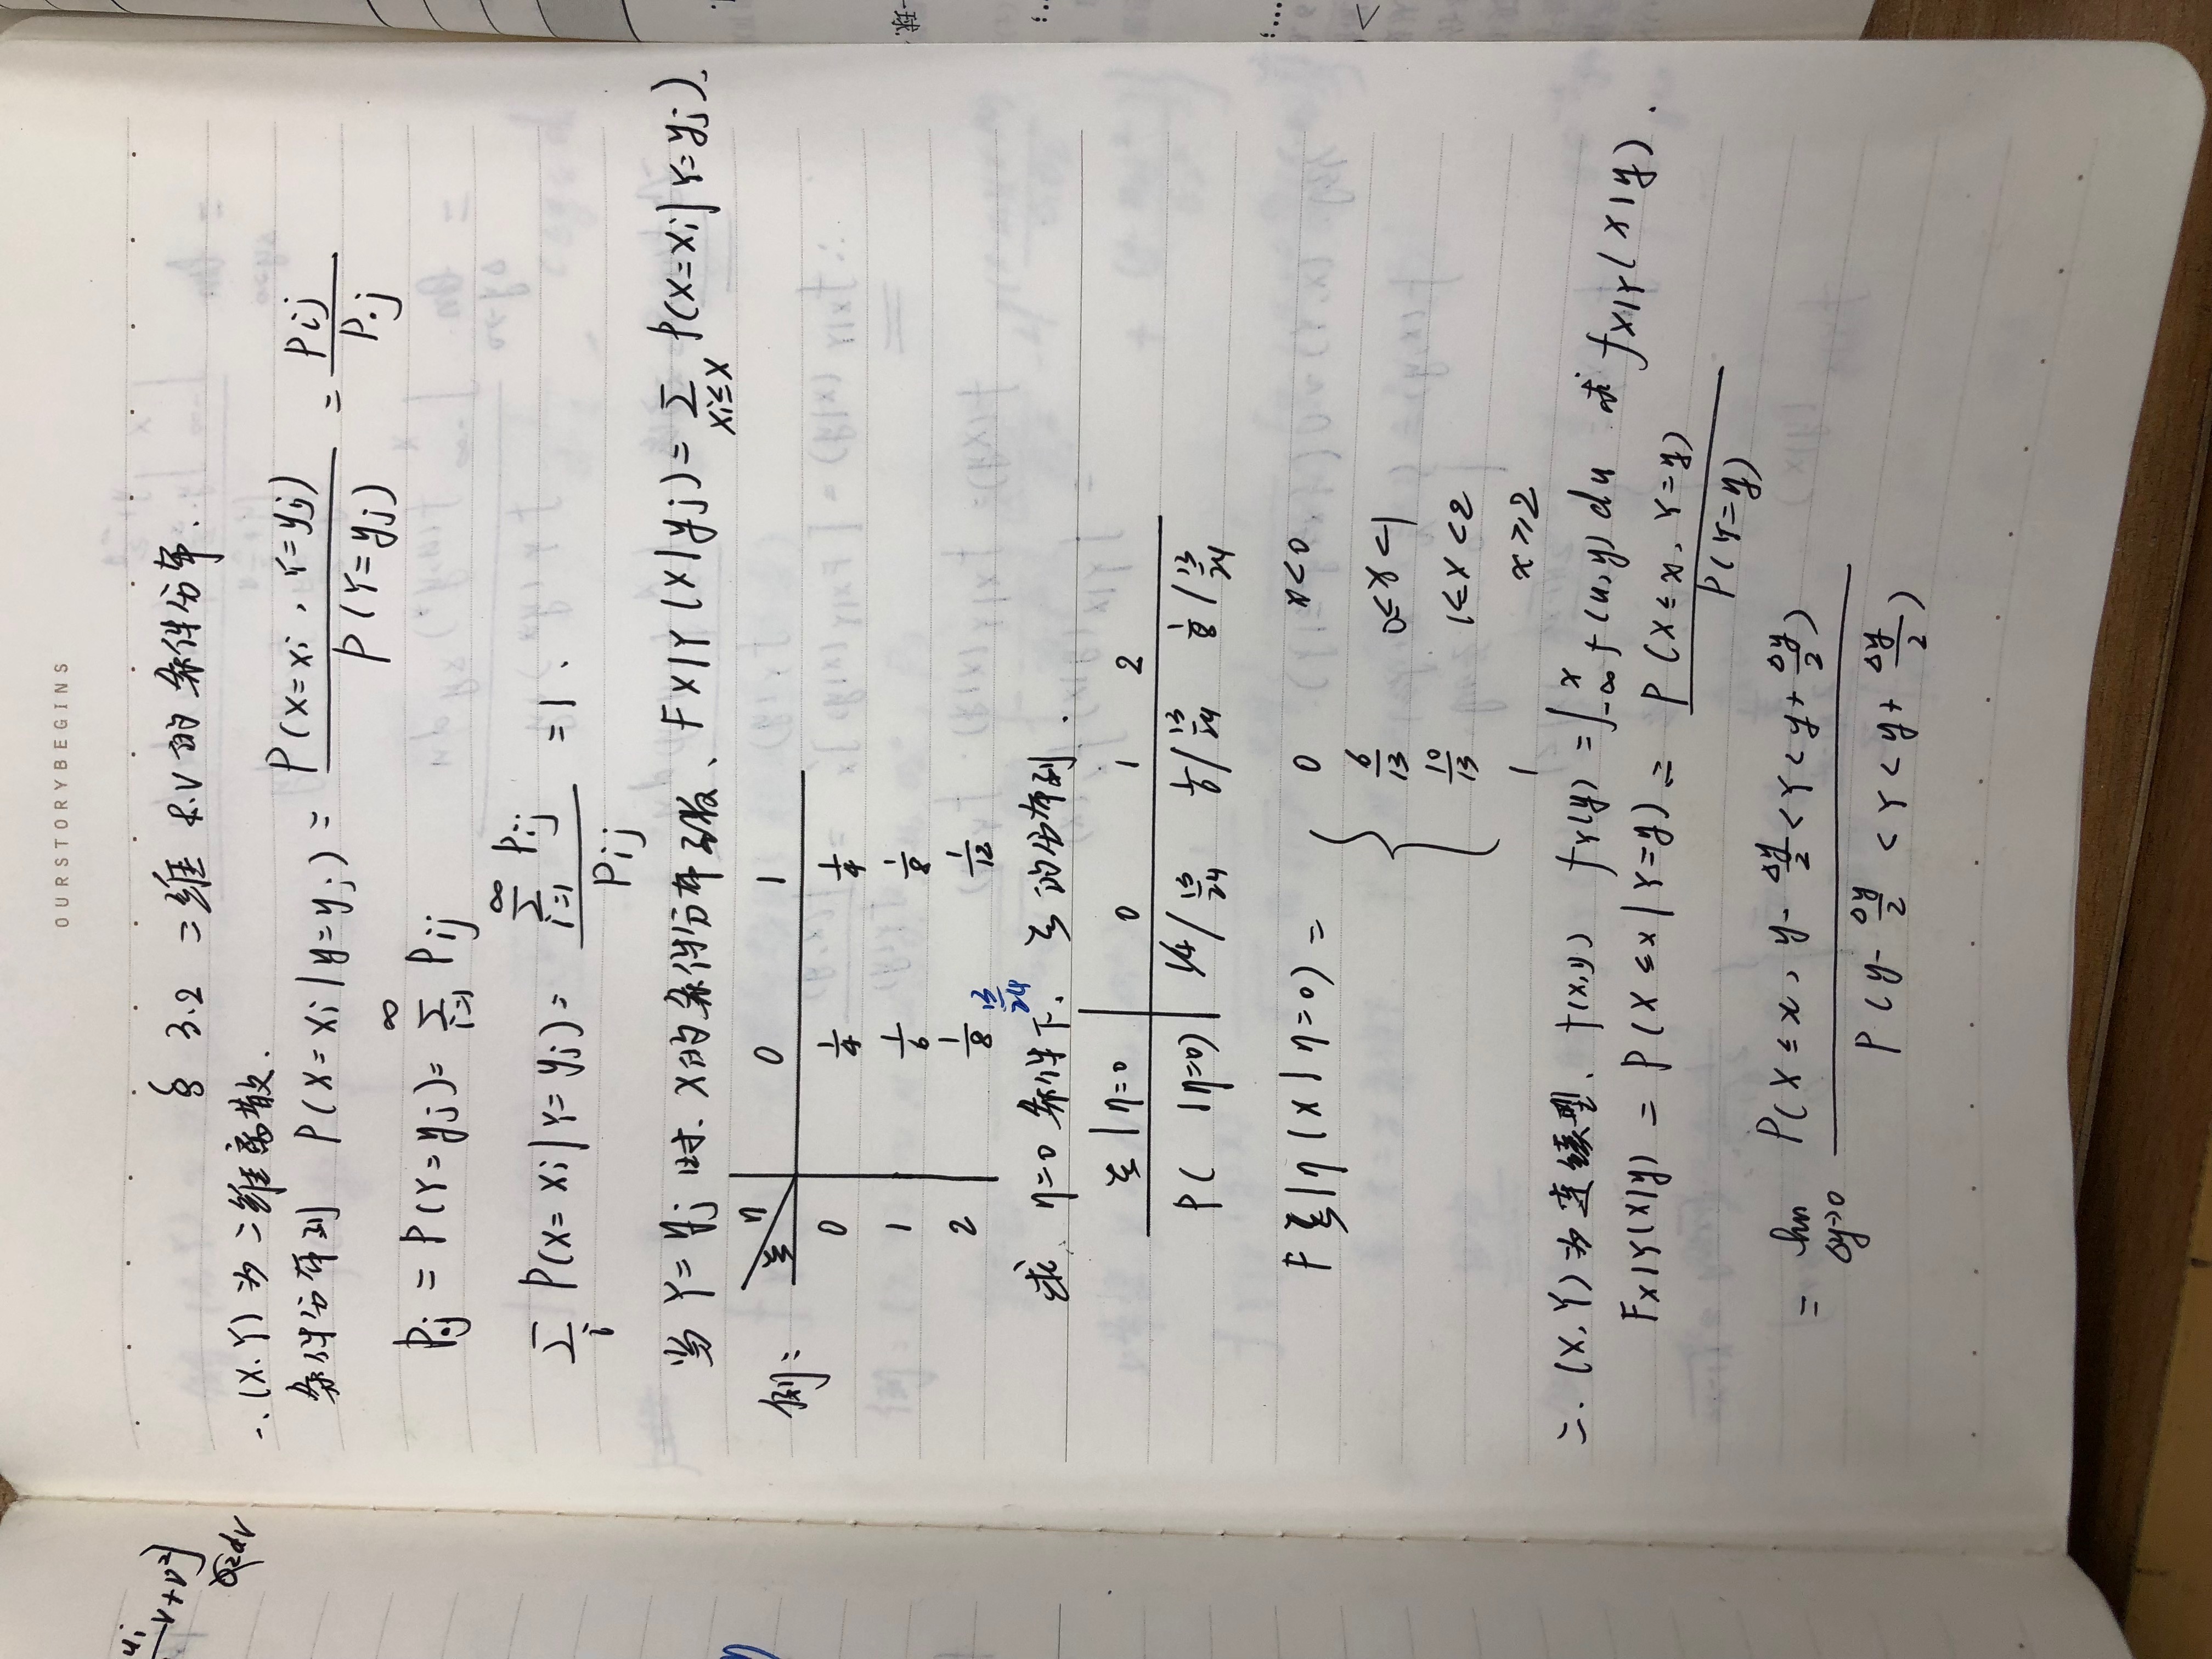 OURSTORYBEGINS
§ 3.2 二维 R.V 的条件分布.
一.(X.Y)为二维离散.
条件分布列 P(X=xi|y=yj) = P(X=xi, Y=yj) / P(Y=yj) = Pij / P.j
P.j = P(Y=yj) = ∑_{i=1}^{∞} Pij
∑_i P(X=xi|Y=yj) = ∑_{i=1}^{∞} Pij / Pij = 1.
当 Y=yj 时. X的条件分布函数、FX|Y(X|yj) = ∑_{xi≤X} P(X=xi|Y=yj).
例: ξ \ η 0 1
0 1/4 1/4
1 1/6 1/8
2 1/8 1/12
13/24
求 η=0 条件下, ξ的分布列.
ξ|η=0 0 1 2
P( |η=0) 1/4 / 13/24 1/6 / 13/24 1/8 / 13/24
Fξ|η(X|η=0) = { 0 x<0
6/13 0≤x<1
10/13 1≤x<2
1 x≥2
二.(X,Y)为连续型、f(x,y) fY(y) = ∫_{-∞}^{x} f(u,y)du 求 fX|Y(x|y).
FX|Y(X|y) = P(X≤x|Y=y) = P(X≤x, Y=y) / P(Y=y)
= lim_{Δy→0} P(X≤x, y-Δy/2<Y<y+Δy/2) / P(y-Δy/2<Y<y+Δy/2)